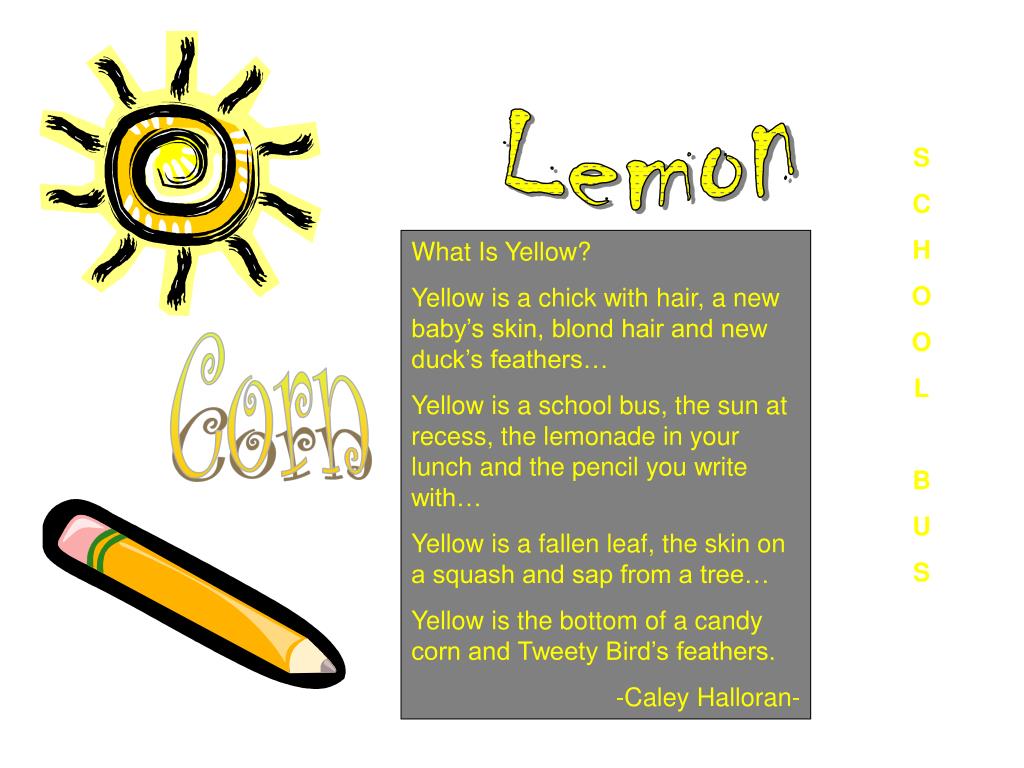 Lemon
What Is Yellow?
Yellow is a chick with hair, a new
baby’s skin, blond hair and new
duck’s feathers…
Yellow is a school bus, the sun at
recess, the lemonade in your
lunch and the pencil you write
with…
Yellow is a fallen leaf, the skin on
a squash and sap from a tree…
Yellow is the bottom of a candy
corn and Tweety Bird’s feathers.
-Caley Halloran-
Corn
S
C
H
O
O
L
B
U
S